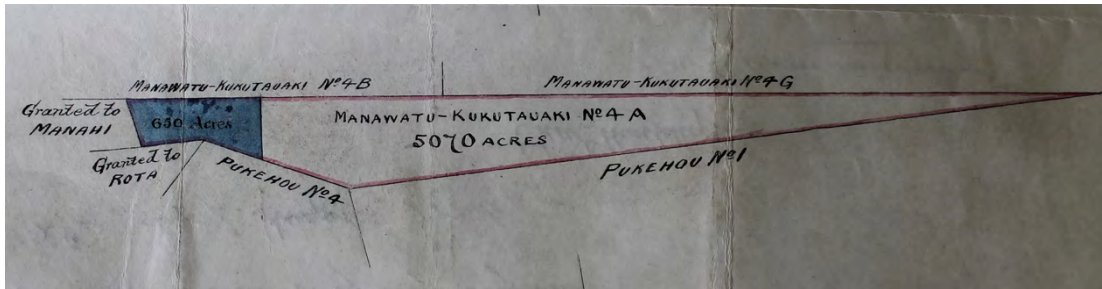 MANAWATU-KUKUTAUAKI Nº4B
MANAWATU-KUKUTAUAKI Nº4G
Granted to
MANAHI
630 Acres
MANAWATU-KUKUTAUAKI Nº4A
5070 ACRES
Granted to
ROTA
PUKEHOU Nº4
PUKEHOU Nº1